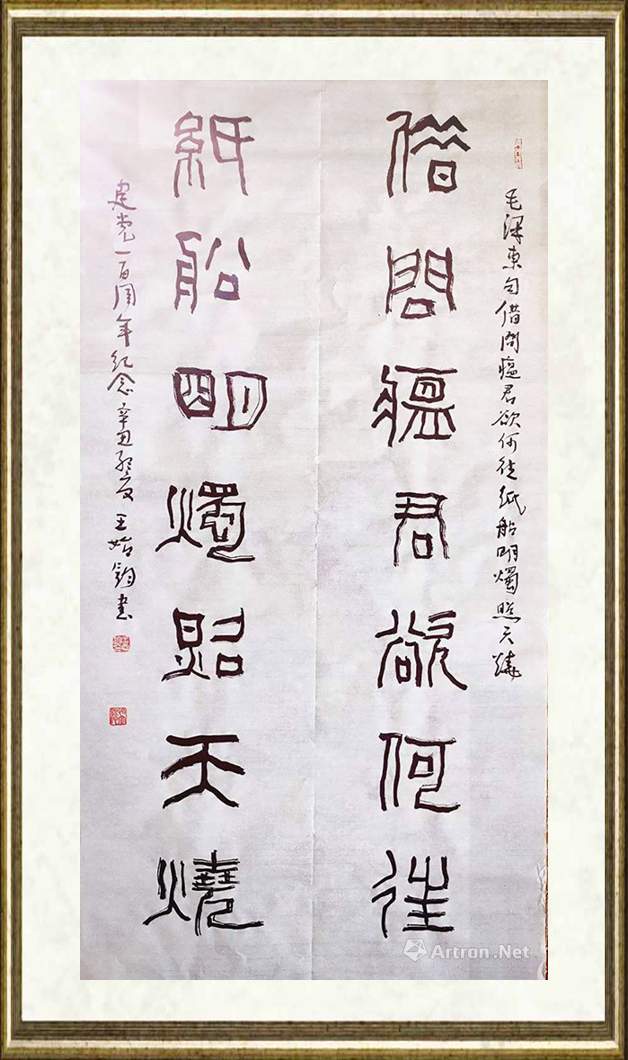 毛泽东句借问瘟君欲何往纸船明烛照天烧
借問瘟君欲何往
紙船明燭照天燒
建党一百周年纪念辛丑孟夏王始钧书
Artron.Net